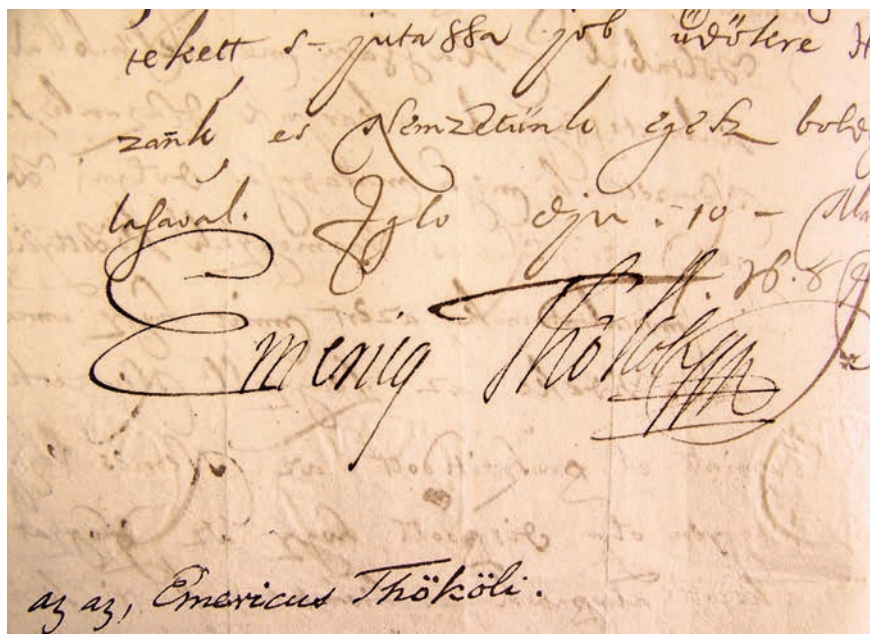 tekett s- jutassa job üdökre
zank es Nemzetünk egesz bold
lasaval. Iglo djn. -10-
16.8
Emericg Thököly
az az, Emericus Thököli.